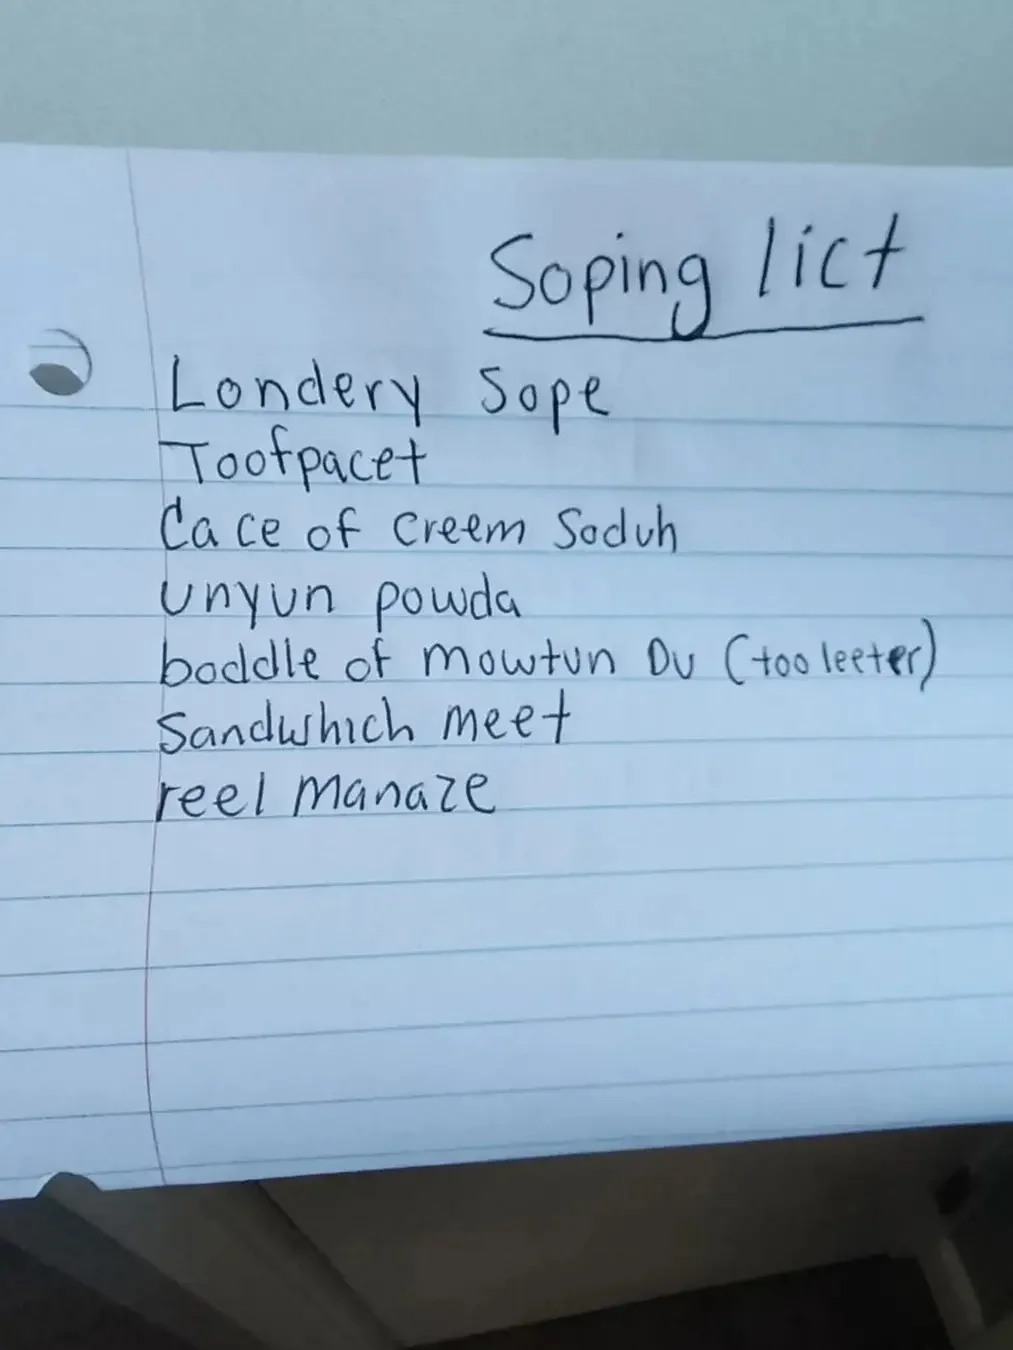 Soping lict
Londery Sope
Toofpacet
Cace of creem Soduh
unyun powda
boddle of mowtun Du (too leeter)
Sandwhich meet
reel manaze